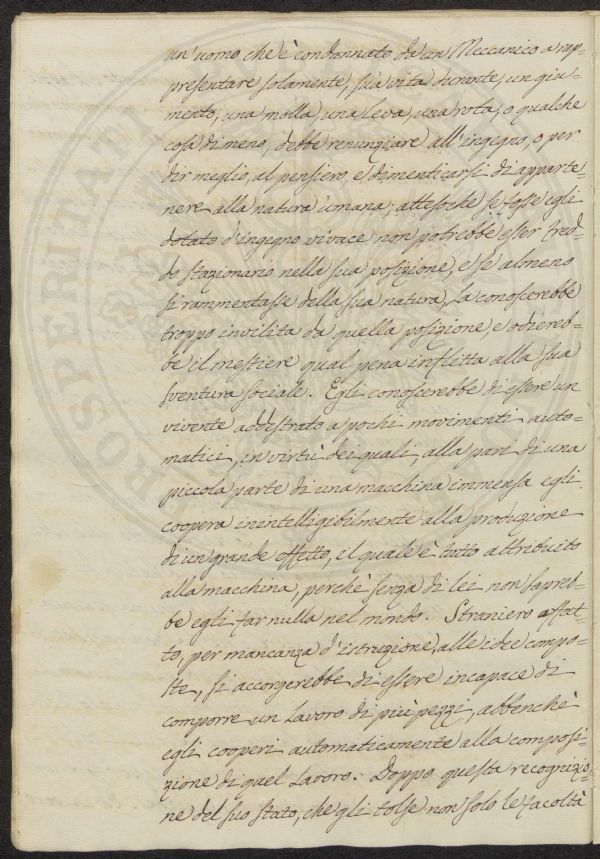 un'uomo che è condannato da un Meccanico a rap-
presentare solamente, sua vita durante, un giu-
mento, una molla, una leva, una rota, o qualche
cosa di meno, debbe renunziare all'ingegno, o per
dir meglio, al pensiero e dimenticarsi di apparte-
nere alla natura umana; attesoche se fosse egli
dotato d'ingegno vivace non potrebbe esser fred-
do stazionario nella sua posizione, e se almeno
si rammentasse della sua natura, la conoscerebbe
troppo invilita da quella posizione, e odiereb-
be il mestiere qual pena inflitta alla sua
sventura sociale. Egli conoscerebbe di essere un
vivente addestrato a pochi movimenti auto-
matici, in virtù dei quali, alla pari di una
piccola parte di una macchina immensa egli
coopera inintelligibilmente alla produzione
di un grande effetto, il quale è tutto attribuito
alla macchina, perchè senza di lei non sapreb-
be egli far nulla nel mondo. Straniero affat-
to, per mancanza d'istruzione, alle idee compo-
ste, si accorgerebbe di essere incapace di
comporre un lavoro di più pezzi, abbenchè
egli cooperi automaticamente alla composi-
zione di quel lavoro. Doppo questa recognizio-
ne del suo stato, che gli tolse non solo le facoltà
PROSPERITATI